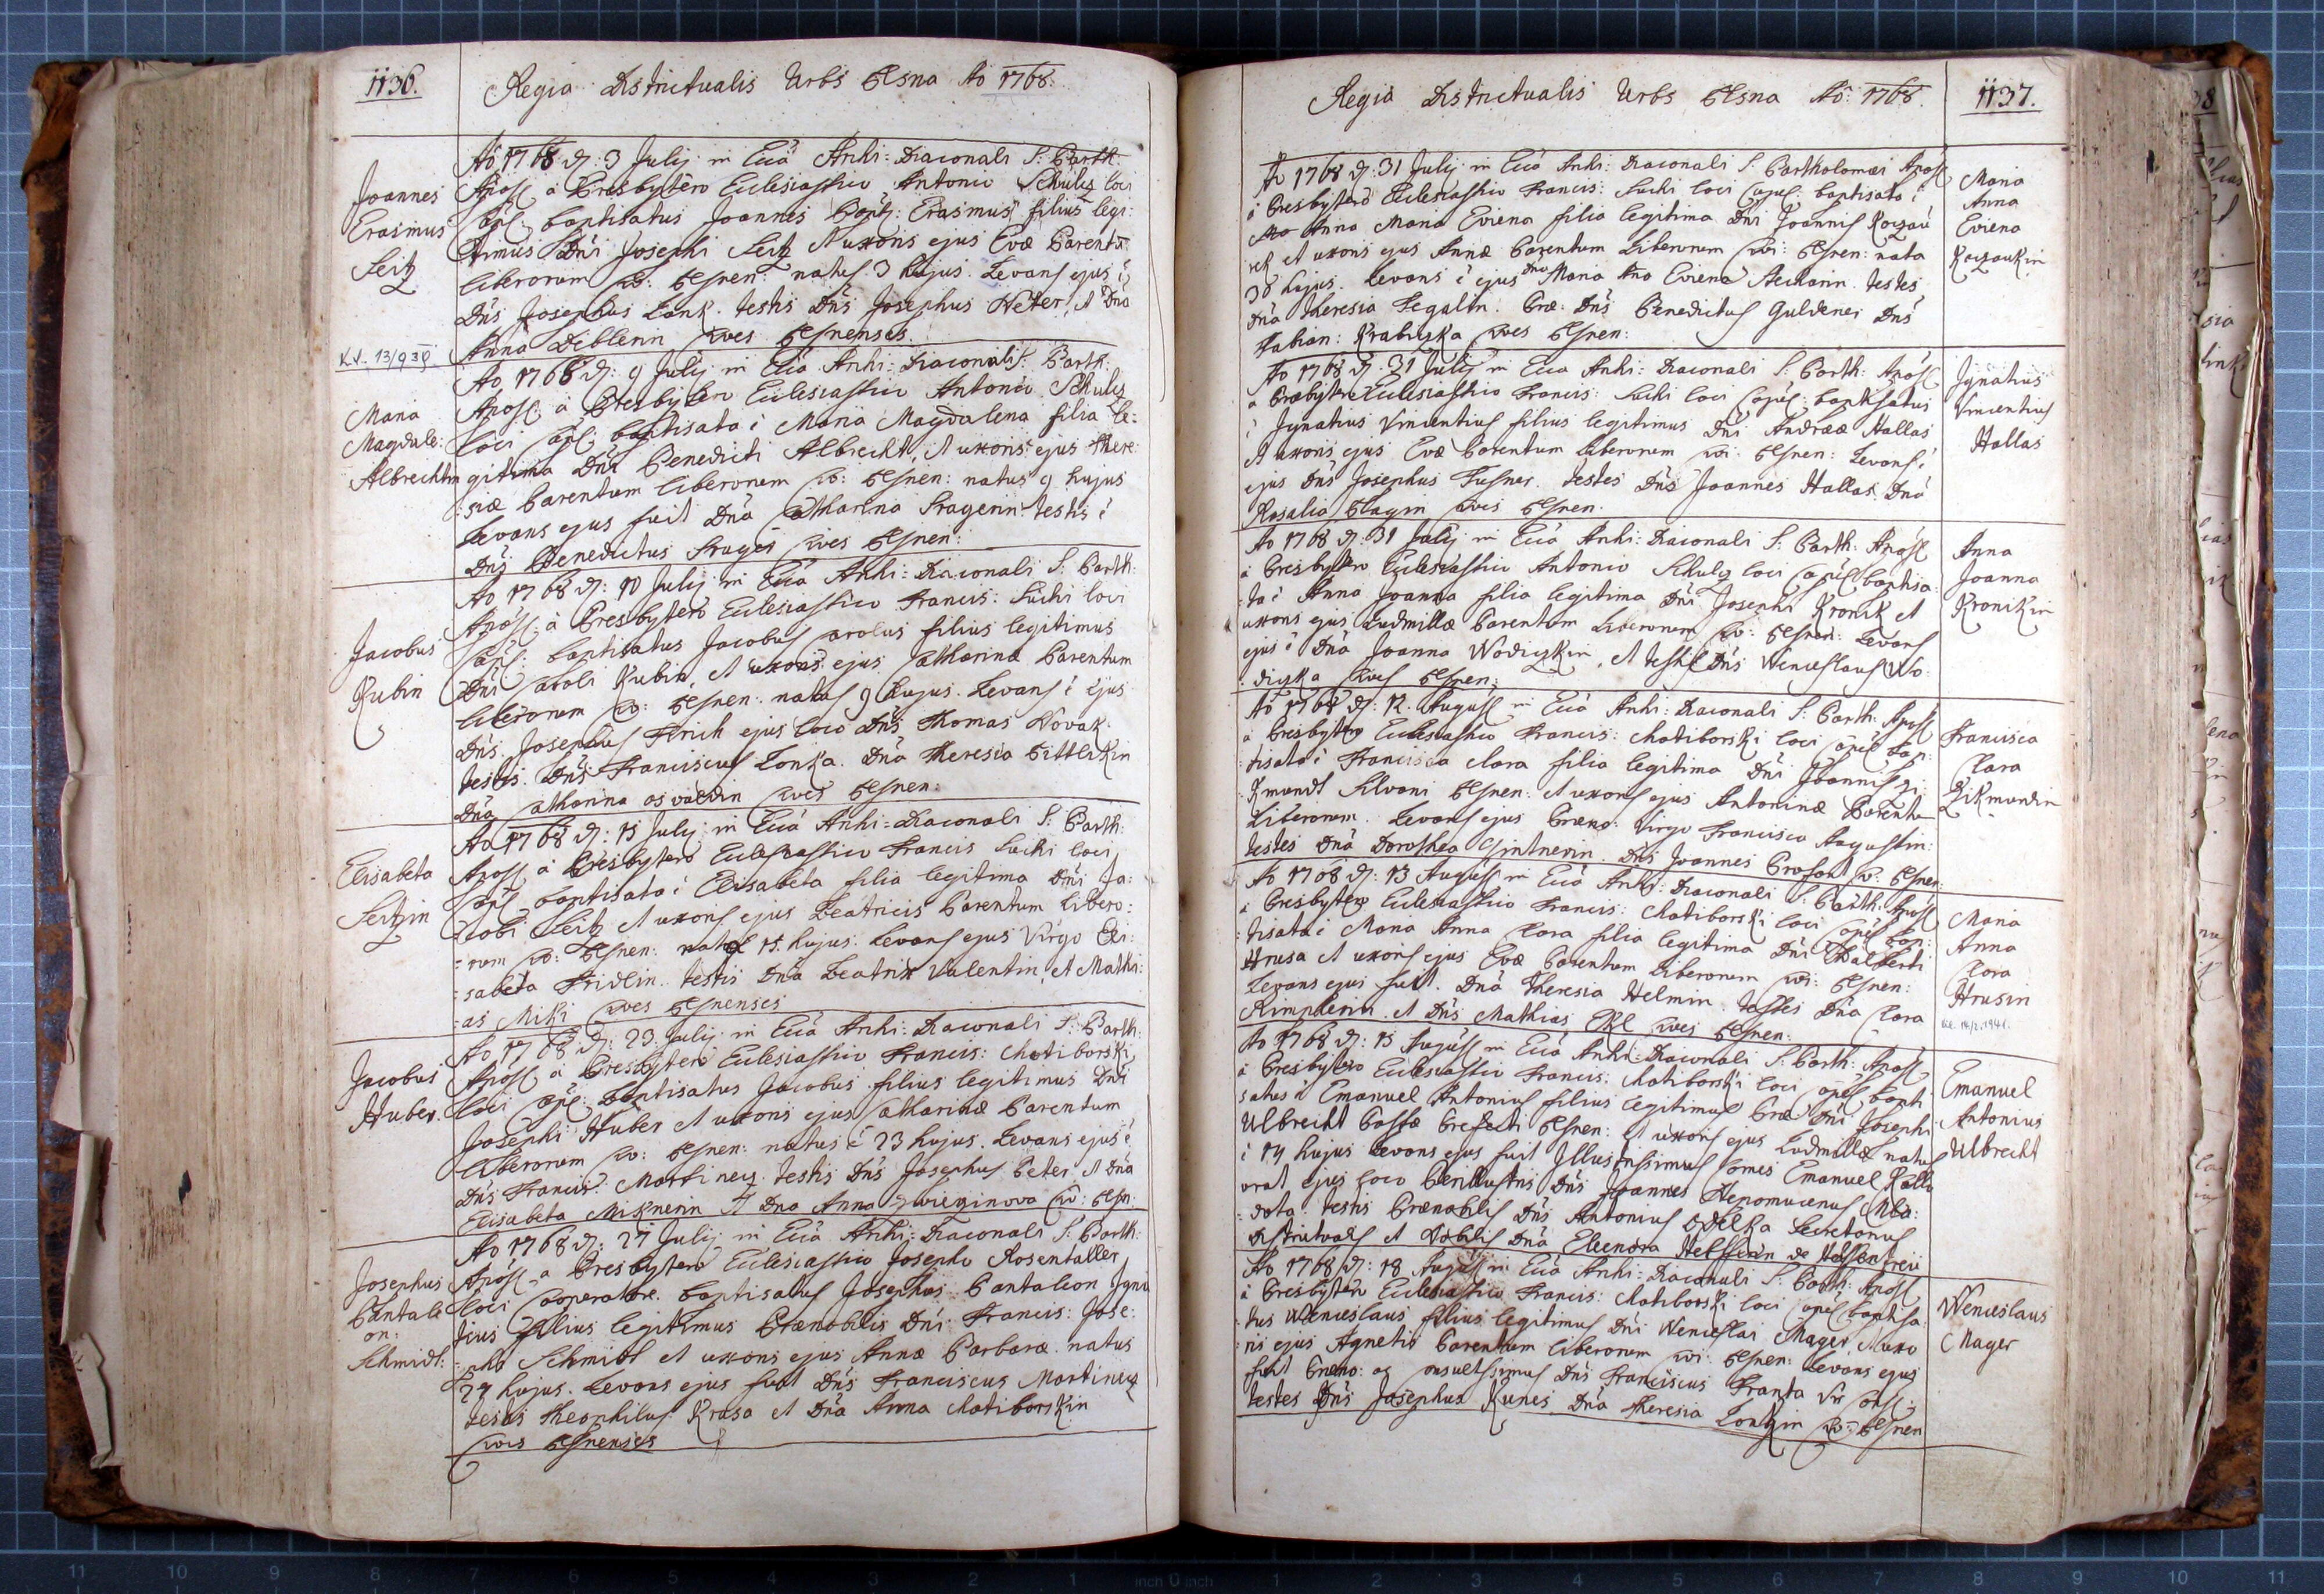 1136.
Regia Districtualis Urbs Plsna Ao 1768.
Joannes
Erasmus
Seitz
Ao 1768 D: 3 July in Ecca Archi=Diaconali S: Barth.
Apost a Presbytero Ecclesiastico Antonio Schulz loci
Capl: baptisatus Joannes Bapt: Erasmus filius legi:
timus Dni Josephi Seitz et uxoris ejus Evæ Parentu
liberorum Civ: Plsnen: natus 3 hujus. Levans ejus e
Dns Josephus Lonk. testis Dns Josephus Heter, et Dna
Anna Deblerin Cives Plsnenses.
Maria
Magdale:
Albrechtin
Ao 1768 D: 9 July in Ecca Archi=Diaconali S: Barth:
Apost: a Presbytero Ecclesiastico Antonio Schulz
loci Capl: baptisata e Maria Magdalena filia le=
gitima Dni Benedicti Albrecht, et uxoris ejus There:
siæ Parentum liberorum Civ: Plsnen: natus 9 hujus
Levans ejus fuit Dna Catharina Pragerin testis e
Dns Benedictus Prager Cives Plsnen:
Jacobus
Kubin
Ao 1768 D: 10 July in Ecca Archi=Diaconali S: Barth:
Apost: a Presbytero Ecclesiastico Francis: Suchi loci
Capl: baptisatus Jacobus Carolus filius legitimus
Dni Caroli Kubin, et uxoris ejus Catharinæ Parentum
liberorum Civ: Plsnen: natus 9 hujus. Levans e ejus
Dns Josephus Strich ejus loco Dns Thomas Novak
testis Dns Franciscus Lonka. Dna Theresia Pittlikin
Dna Catharina osvaldin Cives Plsnen:
Elisabeta
Seitzin
Ao 1768 D: 15 July in Ecca Archi=Diaconali S: Barth:
Apost a Presbytero Ecclesiastico Francis Suchi loci
Capl: baptisata e Elisabeta filia legitima Dni Ja:
=cobi Seitz et uxoris ejus Beatricis Parentum libero:
=rum Civ: Plsnen: nata 15 hujus. Levans ejus Virgo Eli:
=sabeta Fridlin. testis Dna Beatrix Valentin, et Mathi:
=as Miki Cives Plsnenses
Jacobus
Huber.
Ao 1768 D: 23 July in Ecca Archi=Diaconali S: Barth:
Apost: a Presbytero Ecclesiastico Francis: Chotiborski
loci Capl: baptisatus Jacobus filius legitimus Dni
Josephi Huber et uxoris ejus Catharinæ Parentum
liberorum Civ: Plsnen: natus e 23 hujus. Levans ejus e
Dns Francis: Martinez. testis Dns Josephus Peter, et Dna
Elisabeta Miknerin et Dna Anna Civ: Plsn:
Josephus
Pantale
on:
Schmidt:
Ao 1768 D: 27 July in Ecca Archi=Diaconali S: Barth:
Apost a Presbytero Ecclesiastico Josepho Rosentaller
loci Cooperatore. baptisatus Josephus Pantaleon Igna
tius filius legitimus Prænobilis Dni Francis: Jose:
=phi Schmidt et uxoris ejus Annæ Barbaræ natus
27 hujus. Levans ejus fuit Dns Franciscus Martinez
testis Theophilus Krasa et Dna Anna Chotiborskin
Cives Plsnenses
Regia Districtualis Urbs Plsna Ao: 1768.
1137.
Ao 1768 D: 31 July in Ecca Archi=Diaconali S: Bartholomæi Apost
a Presbytero Ecclesiastico Francis: Suchi loci Capel: baptisata e
Anna Maria Eviena filia legitima Dni Joannis Koczau
rek et uxoris ejus Annæ Parentum Liberorum Civi: Plsnen: nata
30 hujus. Levans e ejus Dna Maria Eviena testes
Dna Theresia Fegaltin. Præ: Dns Benedictus Guldener Dns
Fabian: Krabiczka Cives Plsnen:
Maria
Anna
Eviena
Koczaukin
Ao 1768 D: 31 July in Ecca Archi=Diaconali S: Barth: Apost
a Præbytro Ecclesiastico Francis: Suchi loci Capel: baptisatus
e Ignatius Vincentius filius legitimus Dni Andreæ Hallas
et uxoris ejus Evæ Parentum Liberorum Civi: Plsnen: Levans e
ejus Dns Josephus Fusner. testes Dns Joannes Hallas Dna
Rosalia Plagin Cives Plsnen.
Ignatius
Vincentius
Hallas
Ao 1768 D: 31 July in Ecca Archi=Diaconali S: Barth: Apost
a Presbytero Ecclesiastico Antonio Schulz loci Capel baptisa=
=ta e Anna Joanna filia legitima Dni Josephi Kronik et
uxoris ejus Ludmillæ Parentum Liberorum Civ: Plsnen: Levans
ejus e Dna Joanna Wodiczkin, et testis Dns Wenceslaus Wo:
=diczka Cives Plsnen:
Anna
Joanna
Kronikin
Ao 1768 D: 12. August in Ecca Archi=Diaconali S: Barth: Apost
a Presbytero Ecclesiastico Francis: Chotiborski loci Capel bap:
tisata e Francisca Clara filia legitima Dni Joannis Zi:
kmundt Silvani Plsnen: et uxoris ejus Antoninæ Parentu
Liberorum. Levans ejus Præno: Virgo Francisca Augustin:
testes Dna Dorothea Gintnerin. Dns Joannes Profant Civ: Plsnen:
Francisca
Clara
Zikmundin
Ao 1768 D: 13 August in Ecca Archi=Diaconali S: Barth: Apost
a Presbytero Ecclesiastico Francis: Chotiborski loci Capel bap:
=tisata e Maria Anna Clara filia legitima Dni Adalberti
Hrusa et uxoris ejus Evæ Parentum Liberorum Civi: Plsnen:
Levans ejus fuit. Dna Theresia Helmin. testes Dna Clara
Rimplerin et Dns Mathias Ekl Cives Plsnen:
Maria
Anna
Clara
Hrusin
Ao 1768 D: 15 August in Ecca Archi=Diaconali S: Barth: Apost
a Presbytero Ecclesiastico Francis: Chotiborski loci Capel bapti
satus e Emanuel Antonius filius legitimus Præ Dni Josephi
Ulbrecht Postæ Præfecti Plsnen: et uxoris ejus Ludmillæ natus
e 14 hujus Levans ejus fuit Illustrissimus Comes Emanuel
ejus loco Perillustris Dns Joannes Nepomucenus
testis Prænobilis Dns Antonius Odelka Secretarius
Districtualis et Nobilis Dna Eleenora
Emanuel
Antonius
Ulbrecht
Ao 1768 D: 18 August in Ecca Archi=Diaconali S: Barth: Apost
a Presbytero Ecclesiastico Francis: Chotiborski loci Capel baptisa
=tus Wenceslaus filius legitimus Dni Wenceslai Mager, et uxo
=ris ejus Agnetis Parentum liberorum Civi: Plsnen: Levans ejus
fuit Præno: ac Consultissimus Dns Franciscus Franta Vir
testes Dns Josephus Kunes. Dna Theresia Lonkin Civ: Plsnen
Wenceslaus
Mager